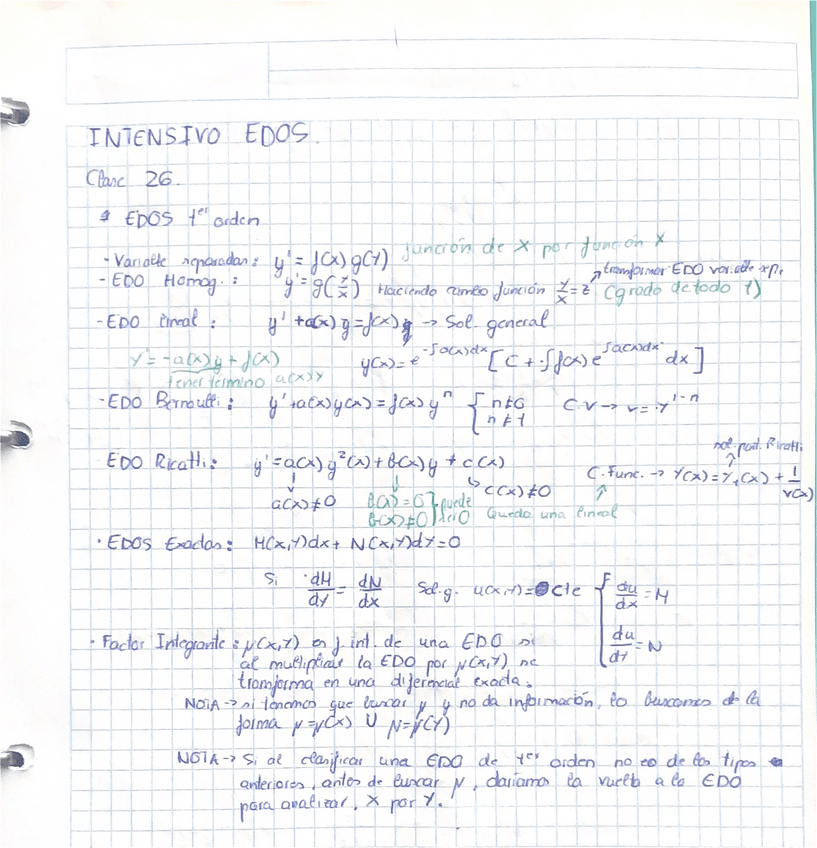 INTENSIVO EDOS.
Clase 26.
EDOS 1er orden
- Variable separadas: y' = f(x) g(y) función de x por función x
- EDO Homog.: y' = g(y/x) Haciendo cambio función y/x = z (grado de todo 1)
transformar EDO variable sp.
- EDO lineal: y' + a(x) y = f(x) → Sol. general
y' = -a(x)y + f(x) y(x) = e^{-∫a(x)dx} [C + ∫f(x) e^{∫a(x)dx} dx]
tener término a(x)y
- EDO Bernoulli: y' + a(x)y(x) = f(x) y^n { n≠0 n≠1 C.V → v = y^{1-n}
sol. part. Ricatti
EDO Ricatti: y' = a(x) y²(x) + b(x) y + c(x) C. Func. → y(x) = y₁(x) + 1/v(x)
a(x)≠0 b(x)=0 b(x)≠0 } puede ser 0 c(x)≠0 Queda una lineal
· EDOS Exactas: M(x,y)dx + N(x,y)dy = 0
Si dM/dy = dN/dx Sol. g. u(x,y) = cte { du/dx = M
du/dy = N
· Factor Integrante: μ(x,y) es f. int. de una EDO si
al multiplicar la EDO por μ(x,y) se
transforma en una diferencial exacta.
NOTA → si tenemos que buscar μ y no da información, lo buscamos de la
forma μ=μ(x) U μ=μ(y)
NOTA → Si al clasificar una EDO de 1er orden no es de los tipos
anteriores, antes de buscar μ, daríamos la vuelta a la EDO
para analizar, x por y.